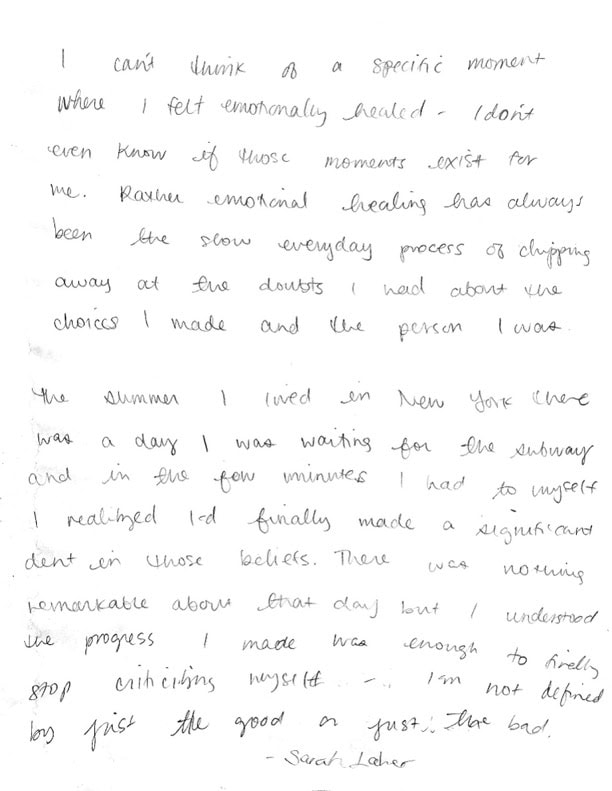 I can't think of a specific moment
where I felt emotionally healed - I don't
even know if those moments exist for
me. Rather emotional healing has always
been the slow everyday process of chipping
away at the doubts I had about the
choices I made and the person I was.
The summer I lived in New York there
was a day I was waiting for the subway
and in the few minutes I had to myself
I realized I'd finally made a significant
dent in those beliefs. There was nothing
remarkable about that day but I understood
the progress I made was enough to finally
stop criticizing myself -. I'm not defined
by just the good or just the bad.
- Sarah